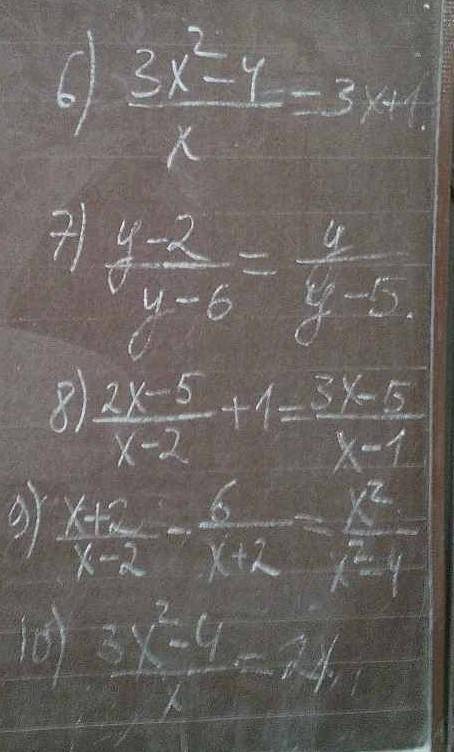 6) (3x²-4)/x = 3x+1.
7) (y-2)/(y-6) = y/(y-5).
8) (2x-5)/(x-2) + 1 = (3x-5)/(x-1)
9) (x+2)/(x-2) - 6/(x+2) = x²/(x²-4)
10) (3x²-4)/x = 2x.